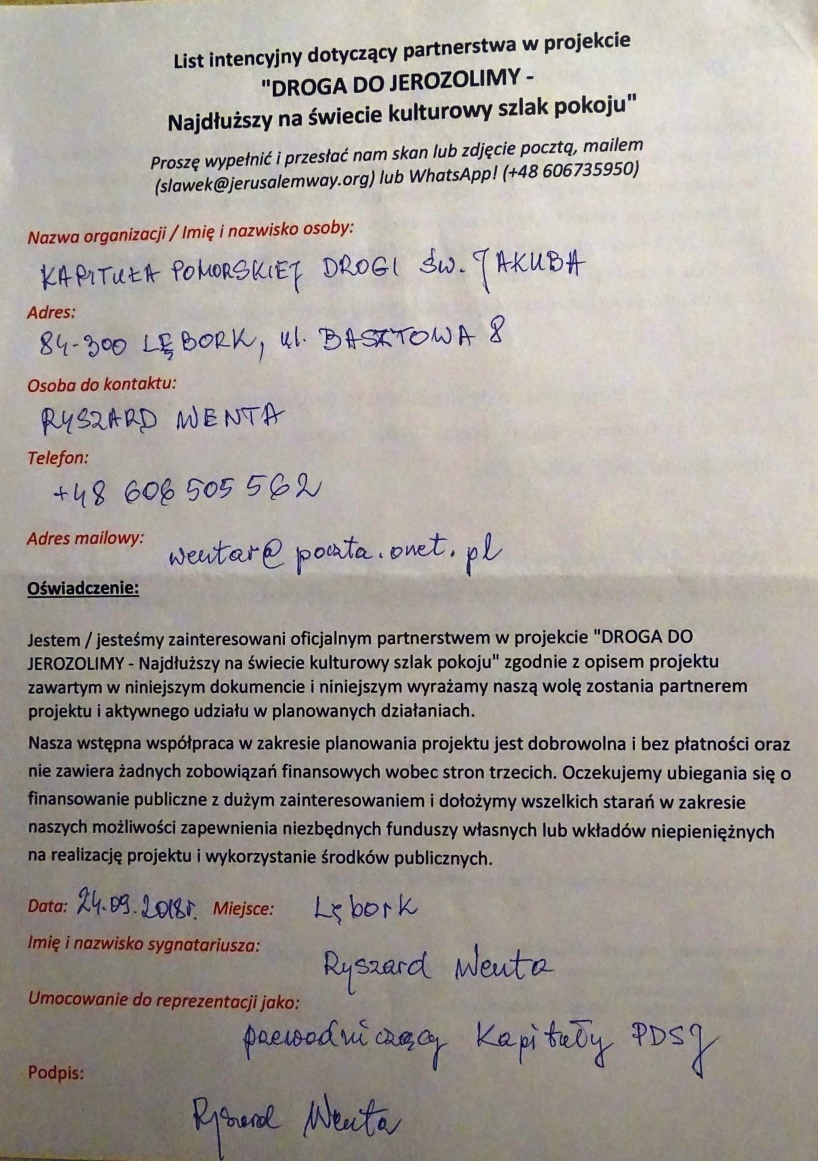 List intencyjny dotyczący partnerstwa w projekcie
"DROGA DO JEROZOLIMY -
Najdłuższy na świecie kulturowy szlak pokoju"
Proszę wypełnić i przesłać nam skan lub zdjęcie pocztą, mailem
(slawek@jerusalemway.org) lub WhatsApp! (+48 606735950)
Nazwa organizacji / Imię i nazwisko osoby:
KAPITUŁA POMORSKIEJ DROGI ŚW. JAKUBA
Adres:
84-300 LĘBORK, ul. BASZTOWA 8
Osoba do kontaktu:
RYSZARD WENTA
Telefon:
+48 606 505 562
Adres mailowy: wentar@poczta.onet.pl
Oświadczenie:
Jestem / jesteśmy zainteresowani oficjalnym partnerstwem w projekcie "DROGA DO
JEROZOLIMY - Najdłuższy na świecie kulturowy szlak pokoju" zgodnie z opisem projektu
zawartym w niniejszym dokumencie i niniejszym wyrażamy naszą wolę zostania partnerem
projektu i aktywnego udziału w planowanych działaniach.
Nasza wstępna współpraca w zakresie planowania projektu jest dobrowolna i bez płatności oraz
nie zawiera żadnych zobowiązań finansowych wobec stron trzecich. Oczekujemy ubiegania się o
finansowanie publiczne z dużym zainteresowaniem i dołożymy wszelkich starań w zakresie
naszych możliwości zapewnienia niezbędnych funduszy własnych lub wkładów niepieniężnych
na realizację projektu i wykorzystanie środków publicznych.
Data: 24.09.2018r. Miejsce: Lębork
Imię i nazwisko sygnatariusza:
Ryszard Wenta
Umocowanie do reprezentacji jako:
przewodniczący Kapituły PDSJ
Podpis:
Ryszard Wenta